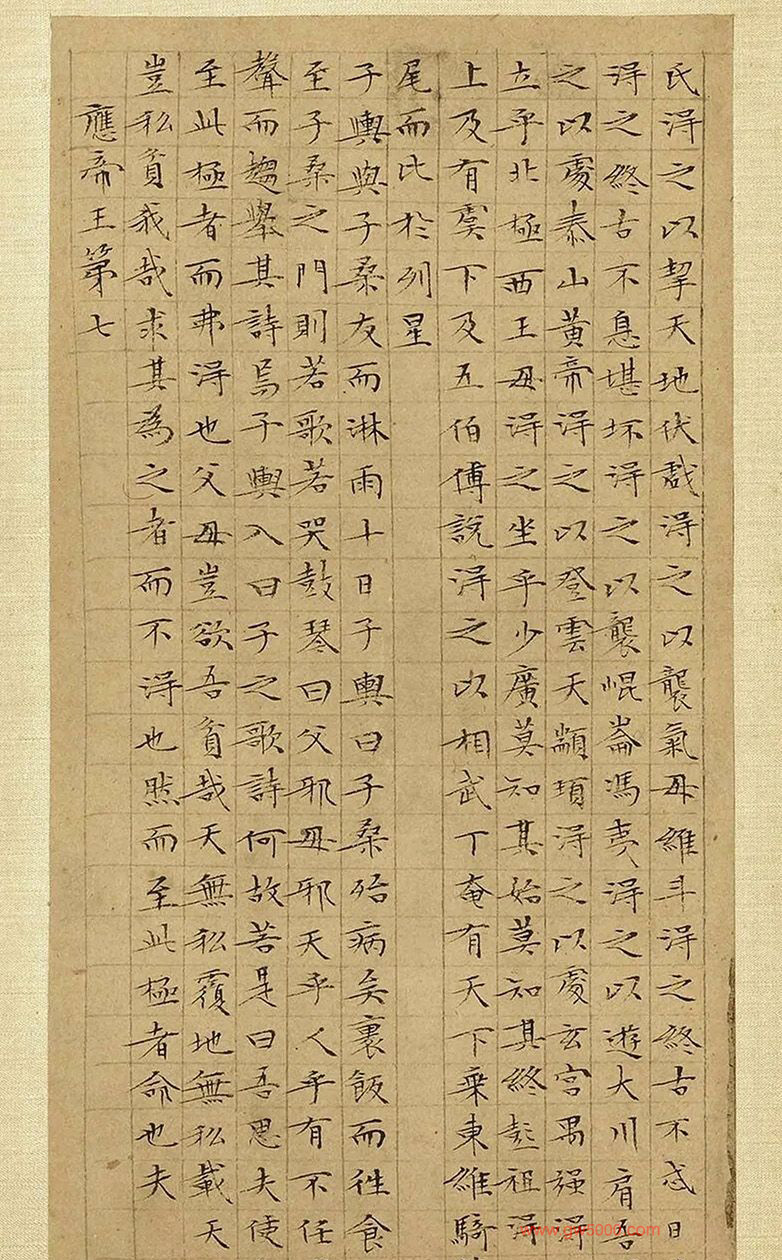 氏得之以挈天地伏戲得之以襲氣母維斗得之終古不忒日
得之終古不息堪坏得之以襲崐崙馮夷得之以遊大川肩吾
之以處泰山黃帝得之以登雲天顓頊得之以處玄宮禺强得
立乎北極西王母得之坐乎少廣莫知其始莫知其終彭祖得
上及有虞下及五伯傅說得之以相武丁奄有天下乘東維騎
尾而比於列星
子輿與子桑友而淋雨十日子輿曰子桑殆病矣裹飯而往食
至子桑之門則若歌若哭鼓琴曰父邪母邪天乎人乎有不任
聲而趨舉其詩焉子輿入曰子之歌詩何故若是曰吾思夫使
至此極者而弗得也父母豈欲吾貧哉天無私覆地無私載天
豈私貧我哉求其為之者而不得也然而至此極者命也夫
應帝王第七